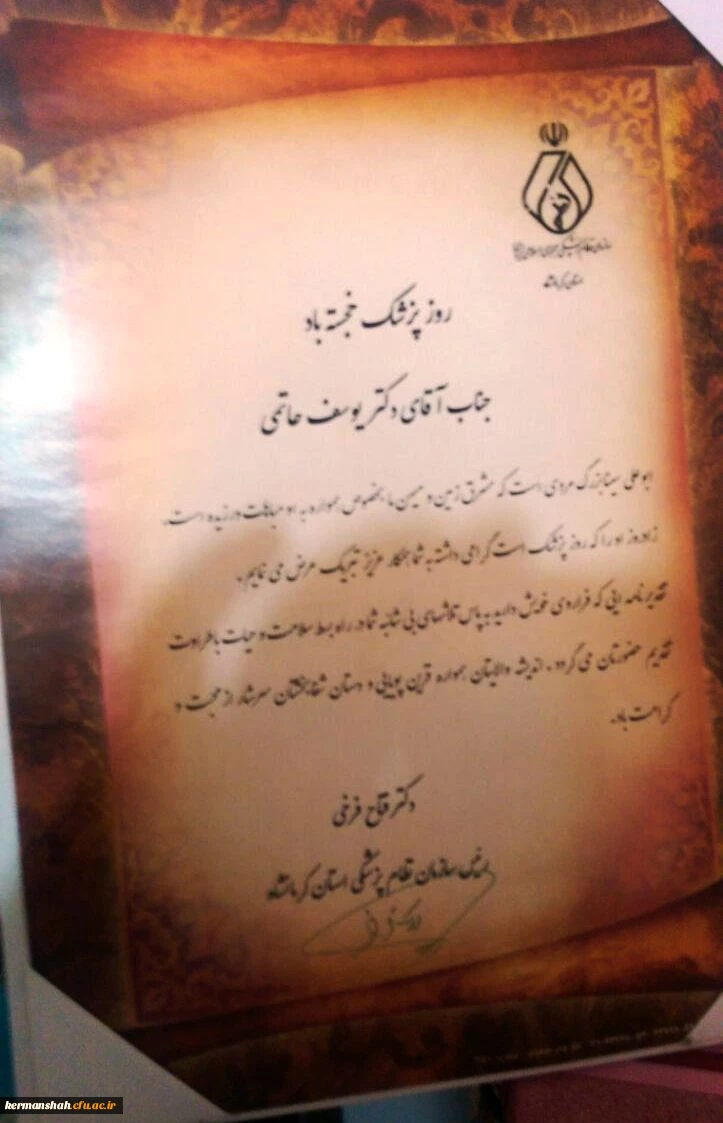 سازمان نظام پزشکی جمهوری اسلامی ایران
استان کرمانشاه
روز پزشک خجسته باد
جناب آقای دکتر یوسف حاتمی
ابوعلی سینا بزرگ مردی است که مشرق زمین و میهن ما بخصوص همواره به او مباهات ورزیده است.
زادروز او را که روز پزشک است گرامی داشته به شما همکار عزیز تبریک عرض می نمایم.
تقدیر نامه ایی که فراروی خویش دارید به پاس تلاشهای بی شائبه شما در رابطه سلامت و حیات با طراوت
تقدیم حضورتان می گردد. اندیشه والایتان همواره قرین پویایی و دستان شفابخشتان سرشار از محبت و
کرامت باد.
دکتر فتاح فرخی
رئیس سازمان نظام پزشکی استان کرمانشاه
kermanshah.cfu.ac.ir